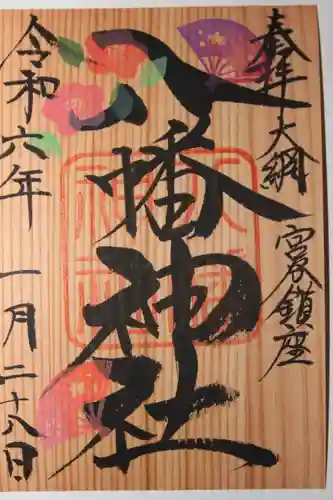 奉拝 大綱
宮谷鎮座
八幡神社
令和六年 一月二十八日